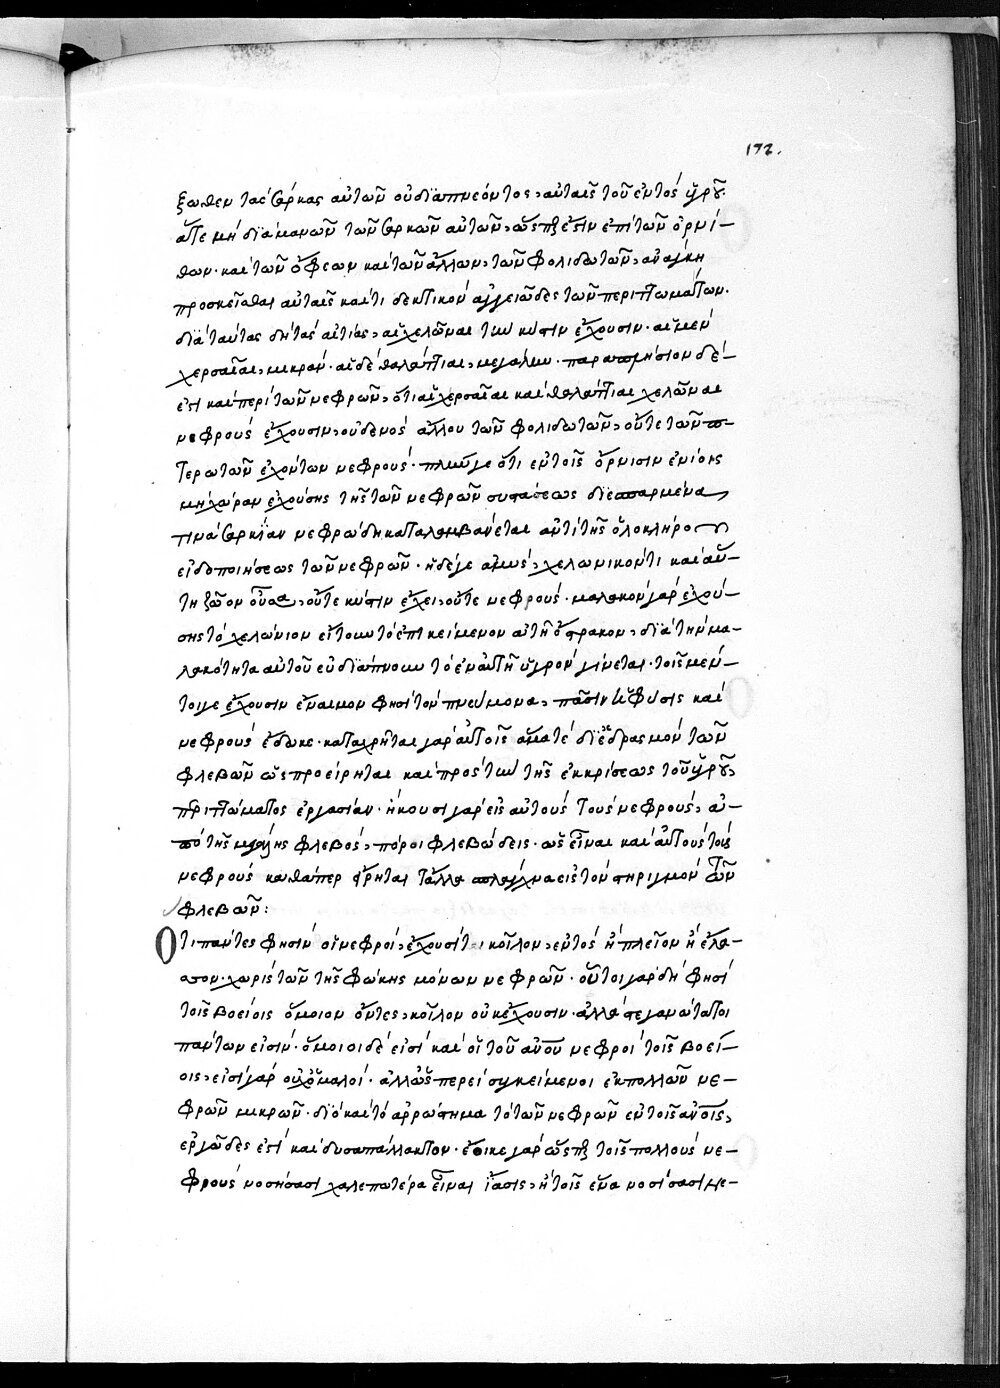 172.
ξωθεν τὰς σάρκας αὐτῶν οὐ διαπνέοντος, αὐταῖς τοῦ ἐντὸς ὑγροῦ.
ἅτε μὴ διὰ μανῶν τῶν σαρκῶν αὐτῶν, ὥσπερ ἐστὶν ἐπὶ τῶν ὀρνί-
θων. καὶ τῶν ὄφεων καὶ τῶν ἄλλων, τῶν φολιδωτῶν, ἀνάγκη
προσκεῖσθαι αὐταῖς καί τι δεκτικὸν ἀγγειῶδες τῶν περιττωμάτων.
διὰ ταύτας δὴ τὰς αἰτίας, αἱ χελῶναι τὴν κύστιν ἔχουσιν. αἱ μὲν
χερσαῖαι, μικράν. αἱ δὲ θαλάττιαι, μεγάλην. παραπλήσιον δέ
ἐστι καὶ περὶ τῶν νεφρῶν, ὅτι αἱ χερσαῖαι καὶ θαλάττιαι χελῶναι
νεφροὺς ἔχουσιν, οὐδενὸς ἄλλου τῶν φολιδωτῶν, οὔτε τῶν π-
τερωτῶν ἐχόντων νεφρούς. πλήν γε ὅτι ἐν τοῖς ὄρνισιν ἐνίοις
μὴ χώραν ἐχούσης τῆς τῶν νεφρῶν συστάσεως διεσπαρμένα
τινὰ σαρκία νεφρώδη καταλαμβάνεται ἀντὶ τῆς ὁλοκλήρου
εἰδοποιήσεως τῶν νεφρῶν. ἡ δέ γε ἀμὺς, χελωνικόν τι καὶ αὕ-
τη ζῶον οὖσα, οὔτε κύστιν ἔχει, οὔτε νεφρούς. μαλακὸν γὰρ ἐχού-
σης τὸ χελώνιον εἴτουν τὸ ἐπικείμενον αὐτῇ ὄστρακον, διὰ τὴν μα-
λακότητα αὐτοῦ εὐδιάπνουν τὸ ἐν αὐτῇ ὑγρὸν γίνεται. τοῖς μέν-
τοιγε ἔχουσιν ἔναιμον φησὶ τὸν πνεύμονα, πᾶσιν ἡ φύσις καὶ
νεφροὺς ἔδωκε. καταχρῆται γὰρ αὐτοῖς ἅμα τε διὲδρασμὸν τῶν
φλεβῶν ὡς προείρηται καὶ πρὸς τὴν τῆς ἐκκρίσεως τοῦ ὑγροῦ,
περιττώματος ἐργασίαν. ἥκουσι γὰρ εἰς αὐτοὺς τοὺς νεφροὺς, ἀ-
πὸ τῆς μεγάλης φλεβὸς, πόροι φλεβώδεις. ὡς εἶναι καὶ αὐτοὺς τοὺς
νεφροὺς καθάπερ εἴρηται τἄλλα σπλάγχνα εἰς τὸν στηριγμὸν τῶν
φλεβῶν:
Ὅτι πάντες φησὶν οἱ νεφροὶ, ἔχουσί τι κοῖλον, ἐντὸς ἢ πλεῖον ἢ ἔλα-
ττον. χωρὶς τῶν τῆς φώκης μόνων νεφρῶν. οὗτοι γὰρ δὴ φησὶ
τοῖς βοείοις ὅμοιοι ὄντες, κοῖλον οὐκ ἔχουσιν. ἀλλὰ στεγανώτατοι
πάντων εἰσίν. ὅμοιοι δέ εἰσι καὶ οἱ τοῦ ἀνου νεφροὶ τοῖς βοεί-
οις, εἰσὶ γὰρ οὐχ ὁμαλοί. ἀλλ᾽ ὥσπερεὶ συγκείμενοι ἐκ πολλῶν νε-
φρῶν μικρῶν. διὸ καὶ τὸ ἀρρώστημα τὸ τῶν νεφρῶν ἐν τοῖς ἀνοις,
ἐργῶδες ἐστὶ καὶ δυσαπάλλακτον. ἔοικε γὰρ ὥσπερ τοῖς πολλοὺς νε-
φροὺς νοσήσασι χαλεπωτέρα εἶναι ἴασις, ἢ τοῖς ἕνα νοσήσασι με-